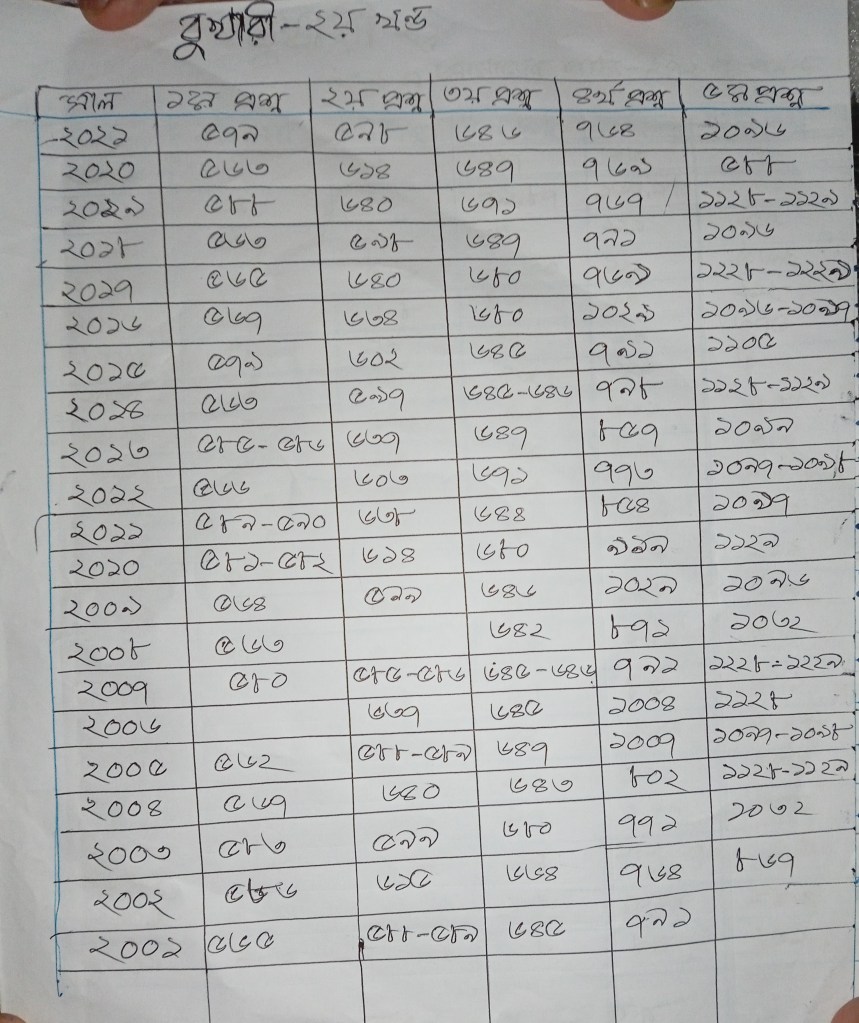 বুখারী - ২য় খন্ড
সাল ১ম প্রশ্ন ২য় প্রশ্ন ৩য় প্রশ্ন ৪র্থ প্রশ্ন ৫ম প্রশ্ন
২০২১ ৫৭৯ ৫৯৮ ৬৪৬ ৭৬৪ ১০৯৬
২০২০ ৫৬৩ ৬১৪ ৬৪৭ ৭৬৯ ৫৮৮
২০১৯ ৫৮৮ ৬৪০ ৬৭১ ৭৬৭ ১১২৮-১১২৯
২০১৮ ৫৬৩ ৫৯৮ ৬৪৭ ৭৯১ ১০৯৬
২০১৭ ৫৬৫ ৬৪০ ৬৮০ ৭৬৯ ১১২৮-১১২৯
২০১৬ ৫৬৭ ৬৩৪ ৬৮০ ১০২৯ ১০৯৬-১০৯৭
২০১৫ ৫৭৯ ৬০২ ৬৪৫ ৭৯১ ১১০৫
২০১৪ ৫৬৩ ৫৯৭ ৬৪৫-৬৪৬ ৭৯৮ ১১২৮-১১২৯
২০১৩ ৫৮৫-৫৮৬ ৬৩৭ ৬৪৭ ৮৫৭ ১০৯৯
২০১২ ৫৬৬ ৬০৩ ৬৭১ ৭৭৩ ১০৯৭-১০৯৮
২০১১ ৫৮৯-৫৯০ ৬৩৮ ৬৪৪ ৮৫৪ ১০৯৭
২০১০ ৫৮১-৫৮২ ৬১৪ ৬৮০ ১১২৯
২০০৯ ৫৬৪ ৫৯৯ ৬৪৬ ১০২৯ ১০৯৬
২০০৮ ৫৬৩ ৬৪২ ৮৭১ ১০৩২
২০০৭ ৫৮০ ৫৮৫-৫৮৬ ৬৪৫-৬৪৬ ৭৯১ ১১২৮-১১২৯
২০০৬ ৬৩৭ ৬৪৫ ১০০৪ ১১২৮
২০০৫ ৫৬২ ৫৮৮-৫৮৯ ৬৪৭ ১০০৭ ১০৯৭-১০৯৮
২০০৪ ৫৬৭ ৬৪০ ৬৪৩ ৮০২ ১১২৮-১১২৯
২০০৩ ৫৮৩ ৫৯৯ ৬৮০ ৭৭১ ১০৩২
২০০২ ৬১৫ ৬৬৪ ৭৬৪ ৮৬৭
২০০১ ৫৬৫ ৫৮৮-৫৮৯ ৬৪৫ ৭৯১